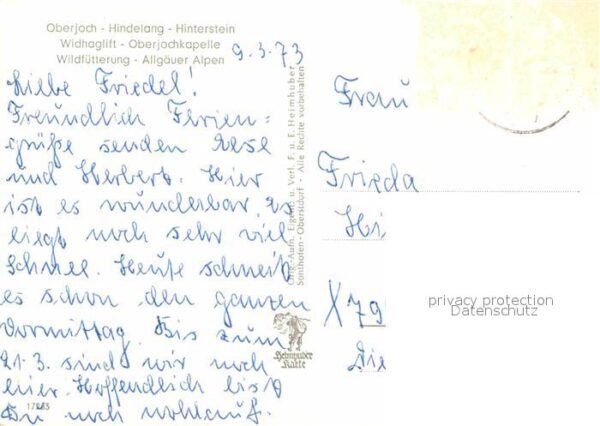 Oberjoch - Hindelang - Hinterstein
Widhaglift - Oberjochkapelle
Wildfütterung - Allgäuer Alpen
9.3.73
Liebe Friedel!
Freundlich Ferien=
grüße senden Rese
und Herbert. Hier
ist es wunderbar, es
liegt noch sehr viel
Schnee. Heute schneit
es schon den ganzen
Vormittag. Bis zum
21.3. sind wir noch
hier. Hoffendlich bist
Du noch wohlauf.
17
Orig.-Aufn. Eigent. u. Verl. F. u. E. Heimhuber
Sonthofen-Oberstdorf - Alle Rechte vorbehalten
Heimhuber
Karte
Frau
Frieda
Hi
X 79
Die
privacy protection
Datenschutz